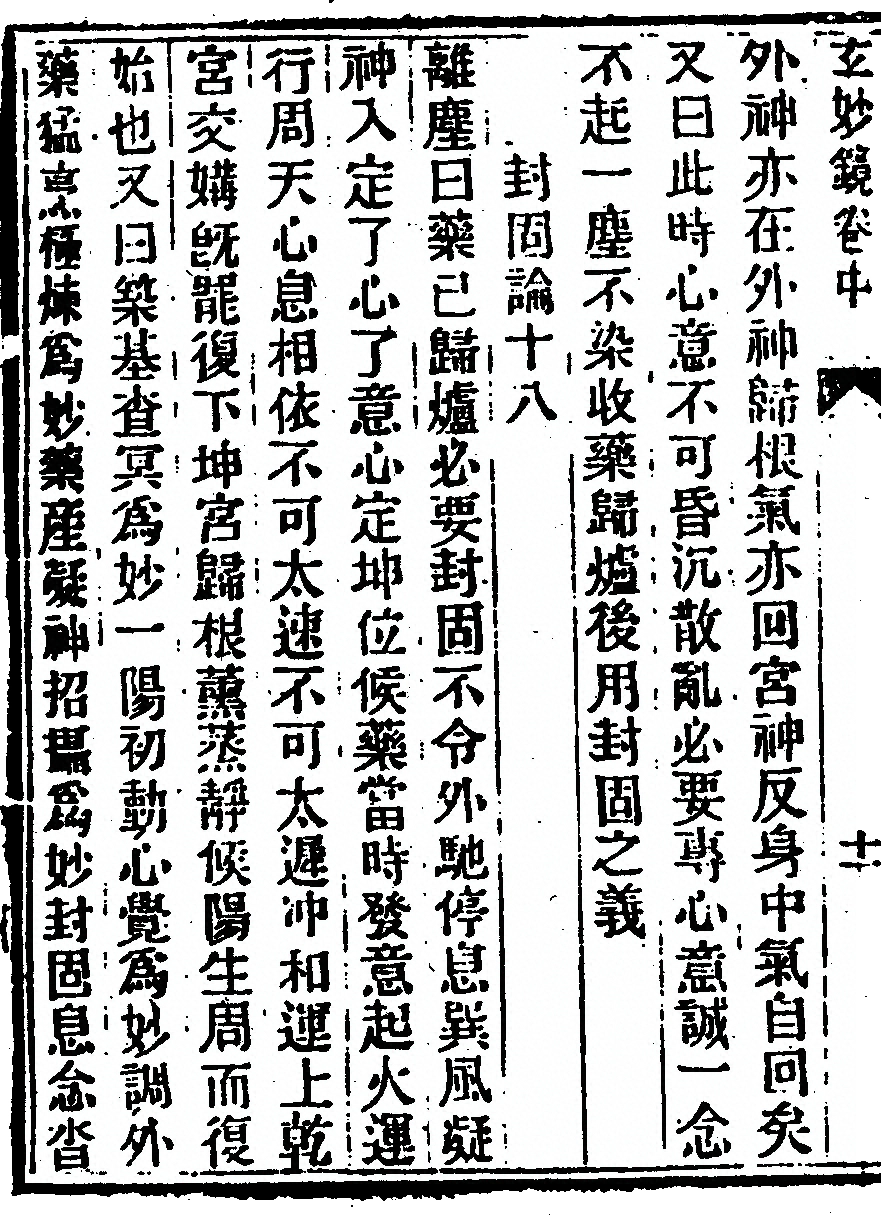 玄妙鏡卷中
十一
外神亦在外神歸根氣亦回宮神反身中氣自回矣
又曰此時心意不可昏沉散亂必要專心意誠一念
不起一塵不染收藥歸爐後用封固之義
封固論十八
離塵曰藥已歸爐必要封固不令外馳停息巽風凝
神入定了心了意心定坤位候藥當時發意起火運
行周天心息相依不可太速不可太遲冲和運上乾
宮交媾旣罷復下坤宮歸根薰蒸靜候陽生周而復
始也又曰築基杳冥爲妙一陽初動心覺爲妙調外
藥猛烹極煉爲妙藥產凝神招攝爲妙封固息念沓